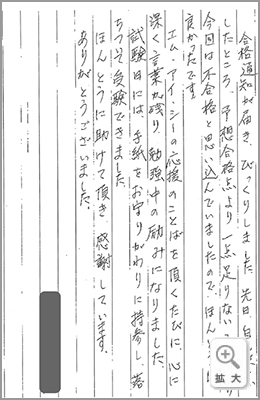 合格通知が届き、びっくりしました。先日、自
したところ、予想合格点より一点足りない
今回は不合格と思い込んでいましたので、ほん
良かったです。
エム・アイ・シーの応援のことばを頂くたびに、心に
深く言葉が残り、勉強中の励みになりました。
試験日には、手紙をお守りがわりに持参し、落
ちついて受験できました。
ほんとうに助けて頂き、感謝しています。
ありがとうございました。
拡大